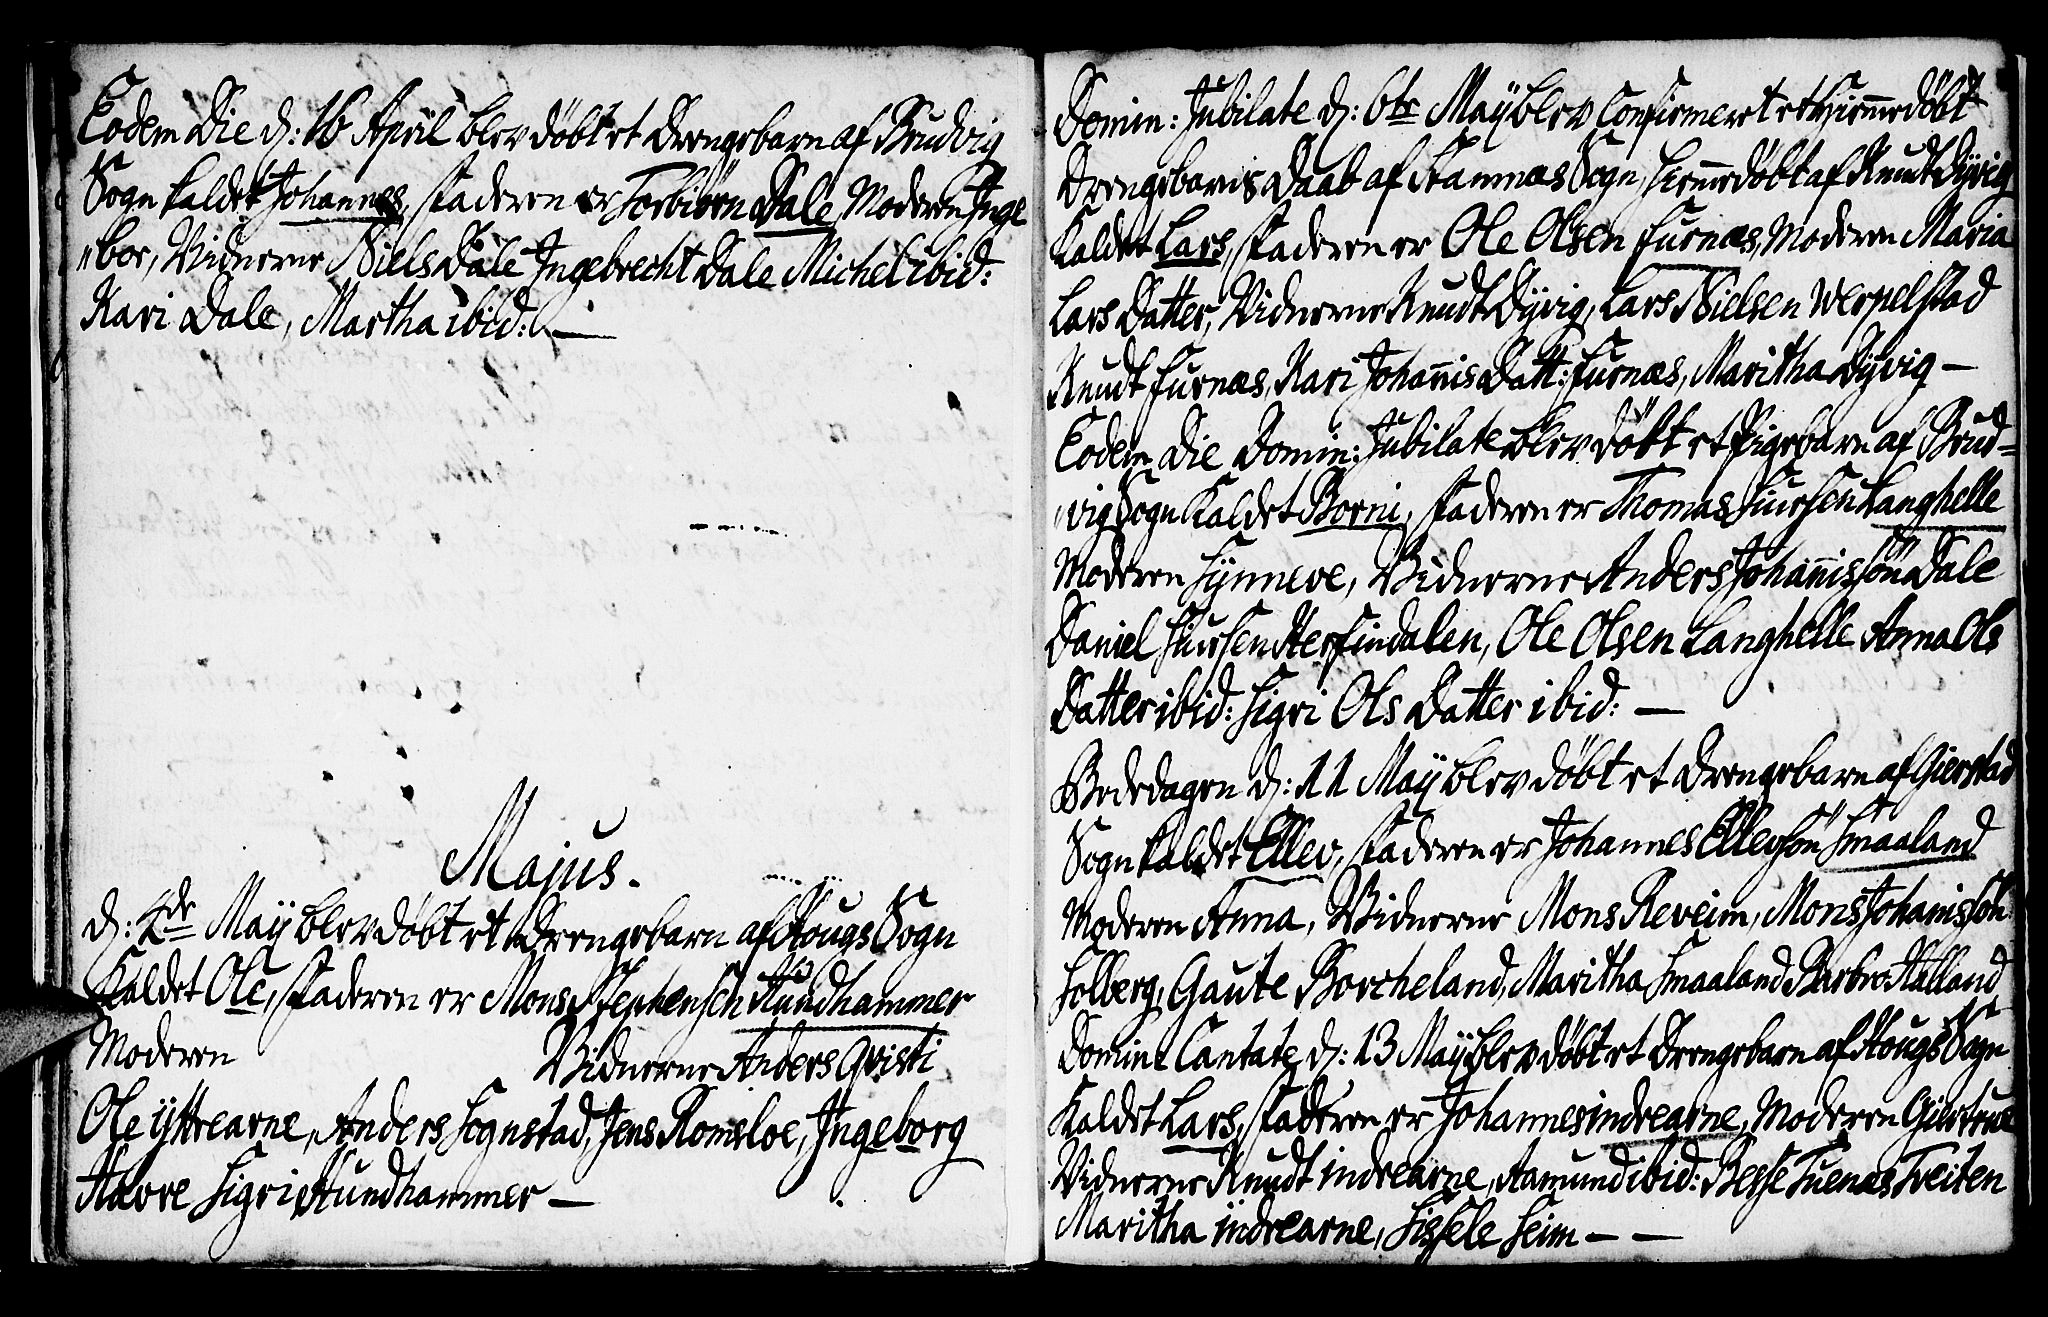 Eodem Die d: 16 April blev döbt et Drengebarn af Brudvig
Sogn kaldet Johannes, Faderen er Torbiörn Dale, Moderen Inge
"bor, Vidnerne Niels Dale Ingebrecht Dale Michel ibid:
Kari Dale, Martha ibid: —
Majus.
d: 2de Maÿ blev döbt et Drengebarn af Hougs Sogn
Kaldet Ole, Faderen er Mons Stephensen Hundhammer
Moderen Vidnerne Anders Qvisti
Ole ÿttrearne, Anders Sognstad, Jens Romsloe, Ingeborg
Havre Sigri Hundhammer —
Domin: Jubilate d: 6te Maÿ blev Confirmeret et Hiemmedöbt
Drengebarns Daab af Stamnæs Sogn, Hiemmedöbt af Knudt Dÿvig
Kaldet Lars, Faderen er Ole Olsen Furnæs, Moderen Maria
Lars Datter, Vidnerne Knudt Dÿvig, Lars Nielsen Werpelstad
Knudt Furnæs, Kari Johannis Datt: Furnæs, Maritha Dÿvig —
Eodem Die Domin: Jubilate blev döbt et Pigebarn af Brud=
"vig Sogn Kaldet Borni, Faderen er Thomas Siursen Langhelle
Moderen Sÿnneve, Vidnerne Anders Johannissön Dale
Daniel Siursen Herfindalen, Ole Olsen Langhelle Anna Ols
Datter ibid: Sigri Ols Datter ibid: —
Bededagen d: 11 Maÿ blev döbt et Drengebarn af Gierstad
Sogn kaldet Ellev, Faderen er Johannes Ellevsön Smaaland
Moderen Anna, Vidnerne Mons Reveim, Mons Johanissön
Solberg, Gaute Borcheland, Maritha Smaaland Barbro Halland
Domin: Cantate d: 13 Maÿ blev döbt et Drengebarn af Hougs Sogn
Kaldet Lars, Faderen er Johannes indrearne, Moderen Giertrue
Vidnerne Knudt indrearne, Aamund ibid: Besse Tuenæs Treiten
Maritha indrearne, Sissele Seim — —